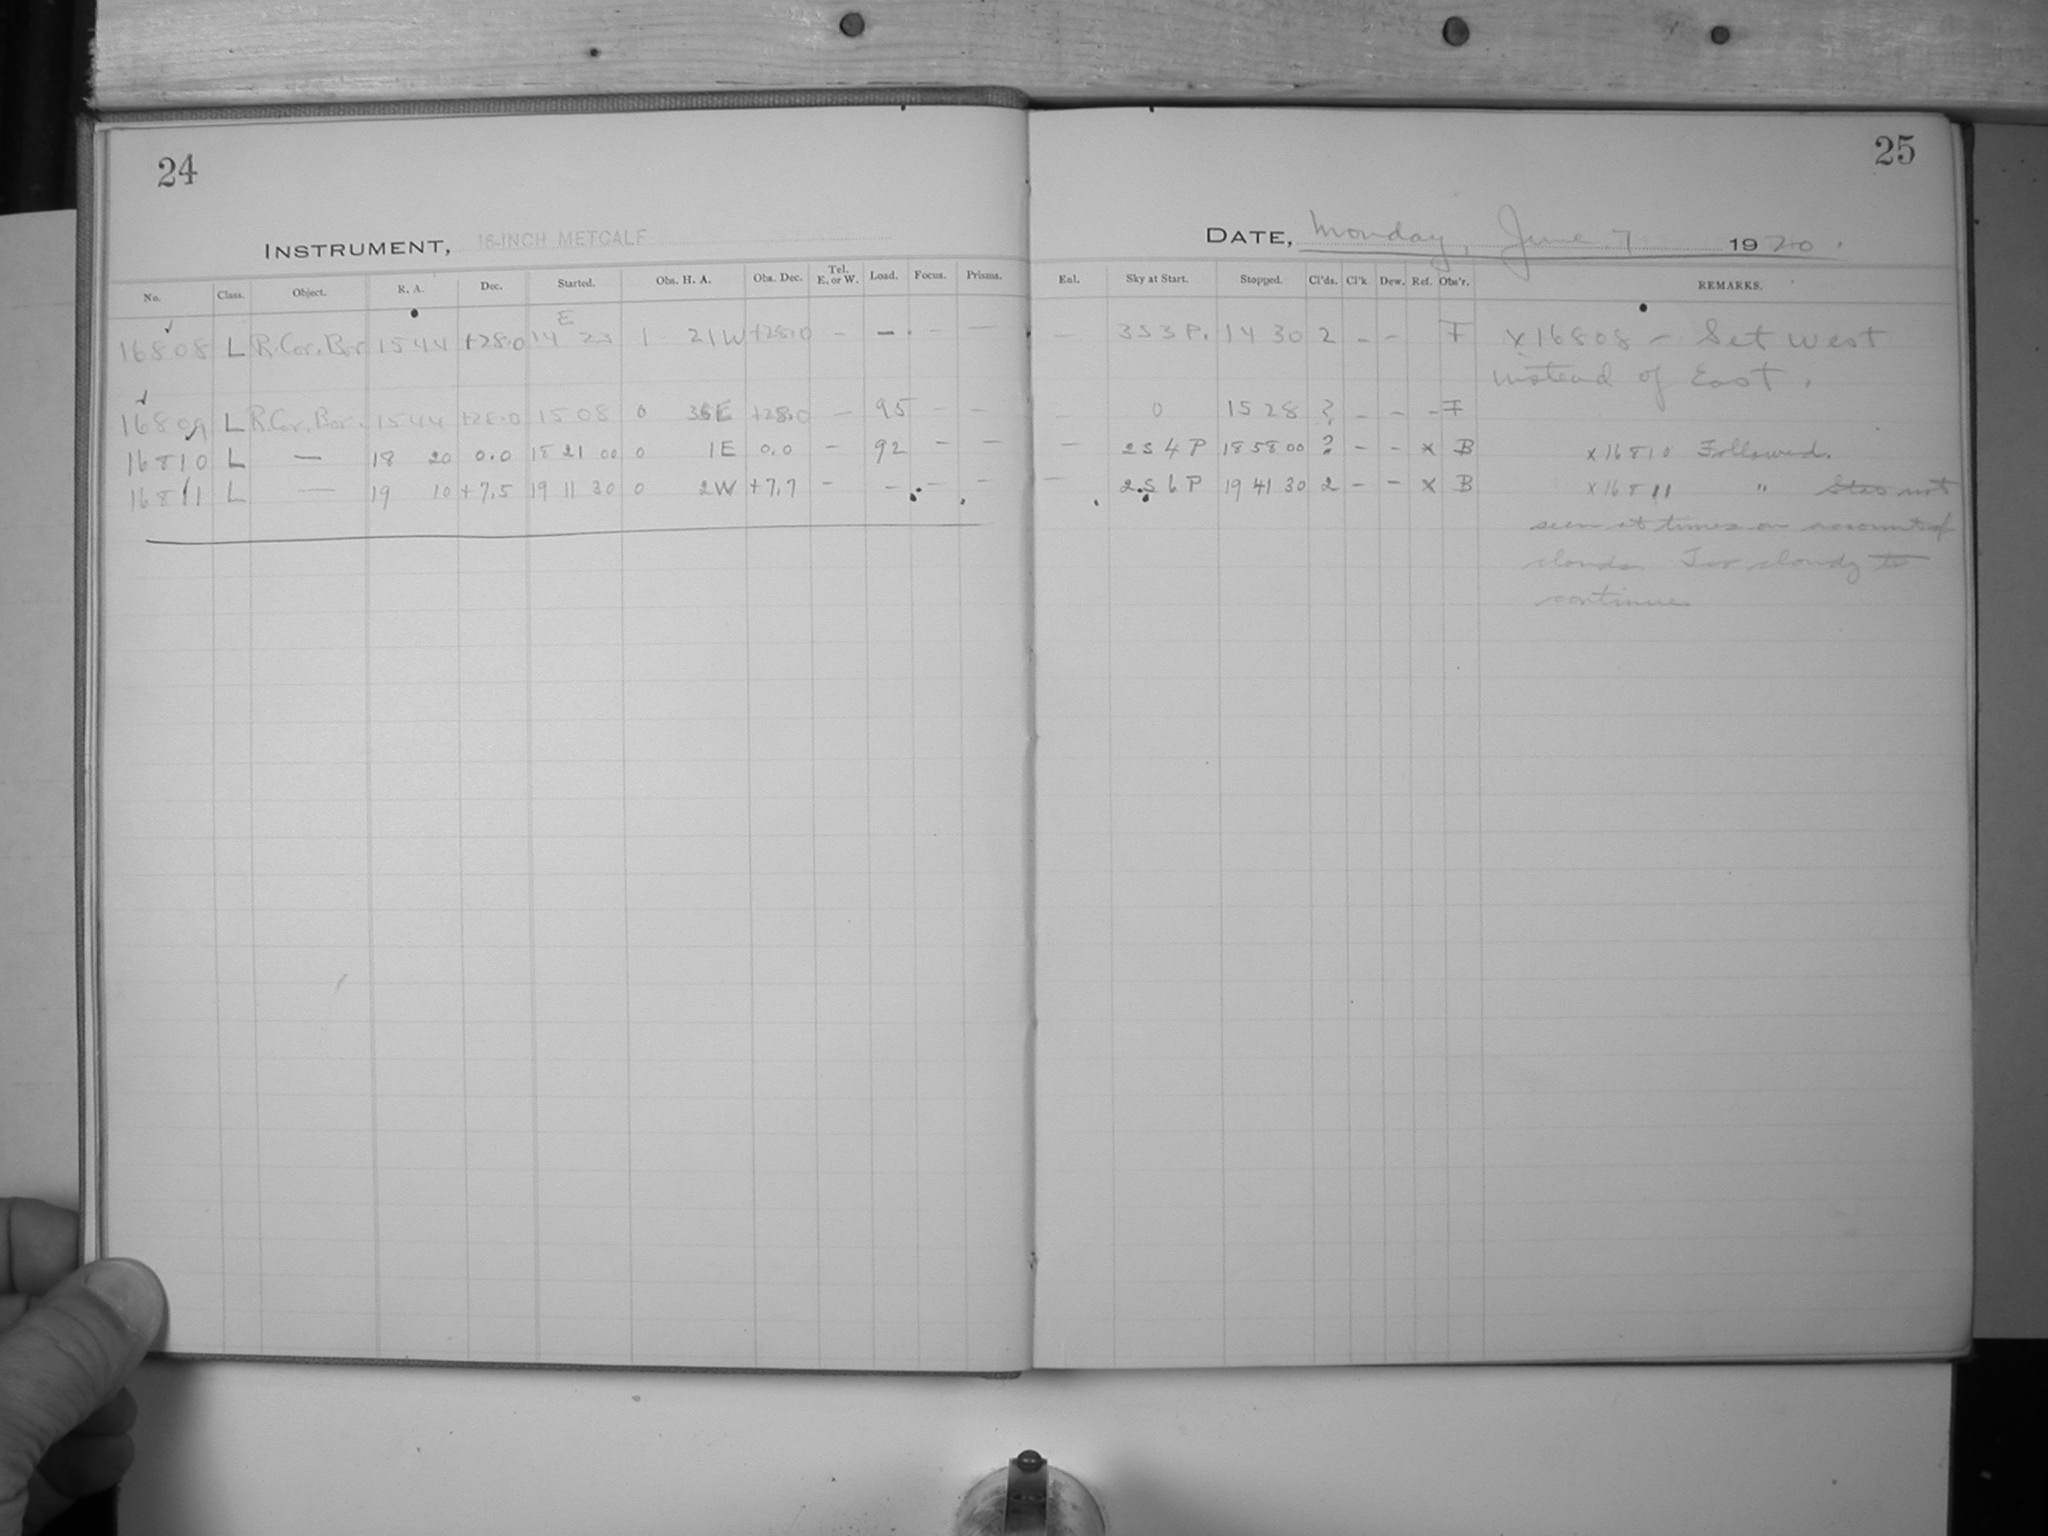 24
25
INSTRUMENT, 16-INCH METCALF
DATE, Monday, June 7 1920.
No. Class. Object. R. A. Dec. Started. Obs. H. A. Obs. Dec. Tel. E. or W. Load. Focus. Prisms. Enl. Sky at Start. Stopped. Cl'ds. Cl'k Dew. Ref. Obs'r. REMARKS.
E
16808 L R.Cor.Bor 15 44 +28.0 14 23 1 21W +28.0 - - - - - 3S3P. 14 30 2 - - F x16808 - Set west
instead of East.
16809 L R.Cor.Bor. 15 44 +28.0 15 08 0 36E +28.0 - 95 - - - 0 15 28 ? - - - F
16810 L - 18 20 0.0 18 21 00 0 1E 0.0 - 92 - - - 2S4P 18 58 00 ? - - x B x16810 Followed.
16811 L - 19 10 +7.5 19 11 30 0 2W +7.7 - - - - - 2S6P 19 41 30 2 - - x B x16811 " Star not
seen at times on account of
clouds. Too cloudy to
continue